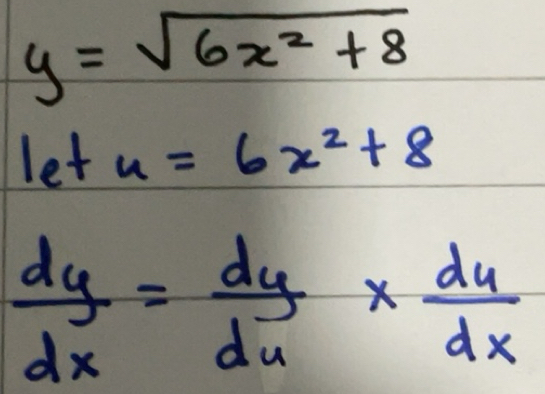 y = √(6x² + 8)
let u = 6x² + 8
dy/dx = dy/du × du/dx